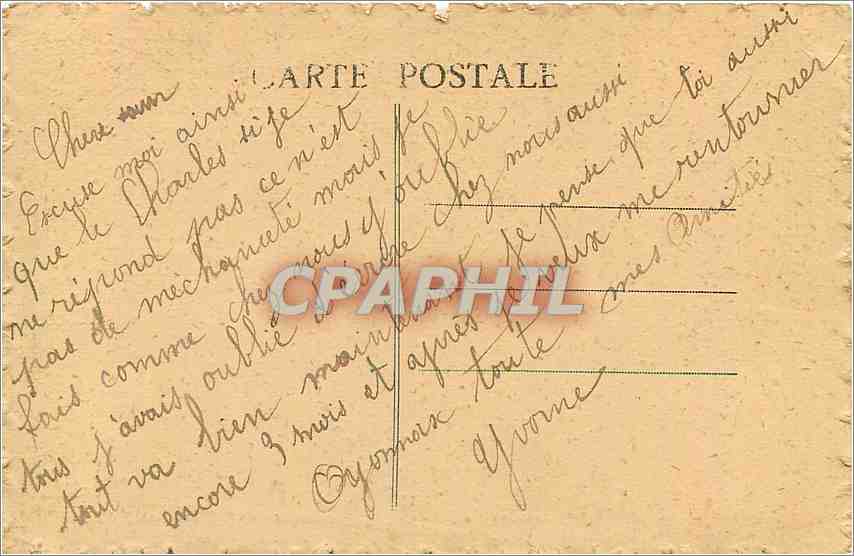 CARTE POSTALE
Chere
Excuse moi ainsi
que le Charles si je
ne répond pas ce n'est
pas de méchanceté mais je
fais comme chez nous j'oublie
tous j'avais oublié d'écrire chez nous aussi
tout va bien maintenant je pense que toi aussi
encore 3 mois et après je veux me rentourner
Oyonnax toute mes Amitiés
Yvonne
CPAPHIL